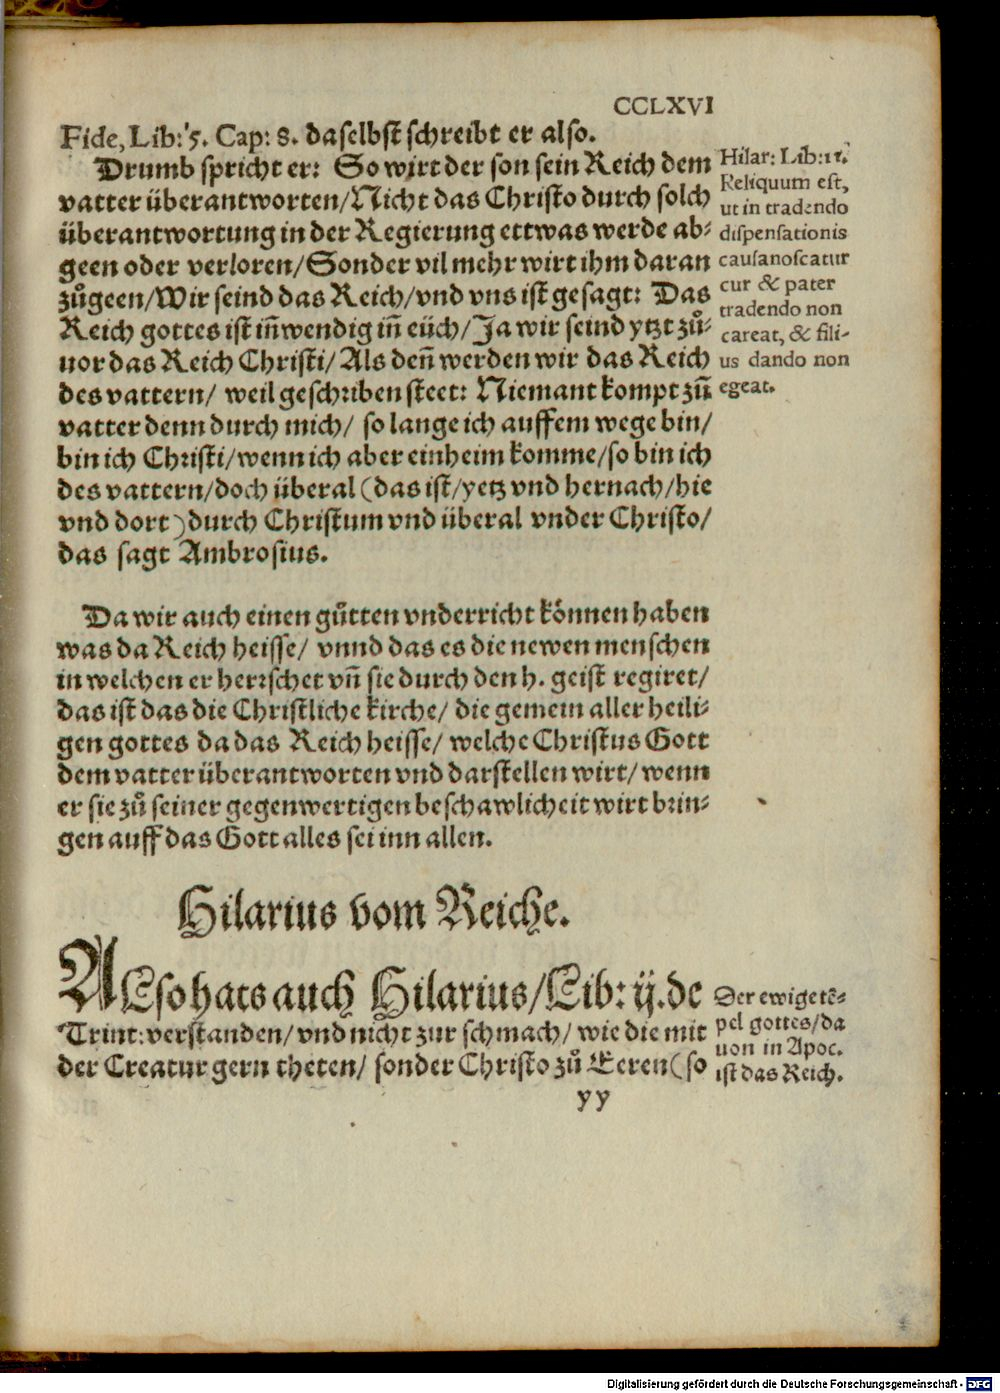 CCLXVI
Fide, Lib: 5. Cap: 8. daselbst schreibt er also.
Drumb spricht er: So wirt der son sein Reich dem
vatter überantworten/Nicht das Christo durch solch
überantwortung in der Regierung ettwas werde ab⸗
geen oder verloren/Sonder vil mehr wirt ihm daran
zůgeen/Wir seind das Reich/vnd vns ist gesagt: Das
Reich gottes ist iñwendig iñ eüch/Ja wir seind ytzt zů⸗
uor das Reich Christi/Als deñ werden wir das Reich
des vattern/ weil geschriben steet: Niemant kompt zũ
vatter denn durch mich/ so lange ich auffem wege bin/
bin ich Christi/wenn ich aber einheim komme/so bin ich
des vattern/doch überal (das ist/yetz vnd hernach/hie
vnd dort) durch Christum vnd überal vnder Christo/
das sagt Ambrosius.
Hilar: Lib: 11.
Reliquum est,
ut in tradendo
dispensationis
causa noscatur
cur & pater
tradendo non
careat, & fili-
us dando non
egeat.
Da wir auch einen gůtten vnderricht können haben
was da Reich heisse/ vnnd das es die newen menschen
in welchen er herrschet vñ sie durch den h. geist regiret/
das ist das die Christliche kirche/ die gemein aller heili⸗
gen gottes da das Reich heisse/ welche Christus Gott
dem vatter überantworten vnd darstellen wirt/ wenn
er sie zů seiner gegenwertigen beschawlicheit wirt brin⸗
gen auff das Gott alles sei inn allen.
Hilarius vom Reiche.
ALso hats auch Hilarius/Lib: ij. de
Trint: verstanden/ vnd nicht zur schmach/ wie die mit
der Creatur gern theten/ sonder Christo zů Eeren (so
Der ewige tē⸗
pel gottes/da
uon in Apoc.
ist das Reich.
yy
Digitalisierung gefördert durch die Deutsche Forschungsgemeinschaft - DFG